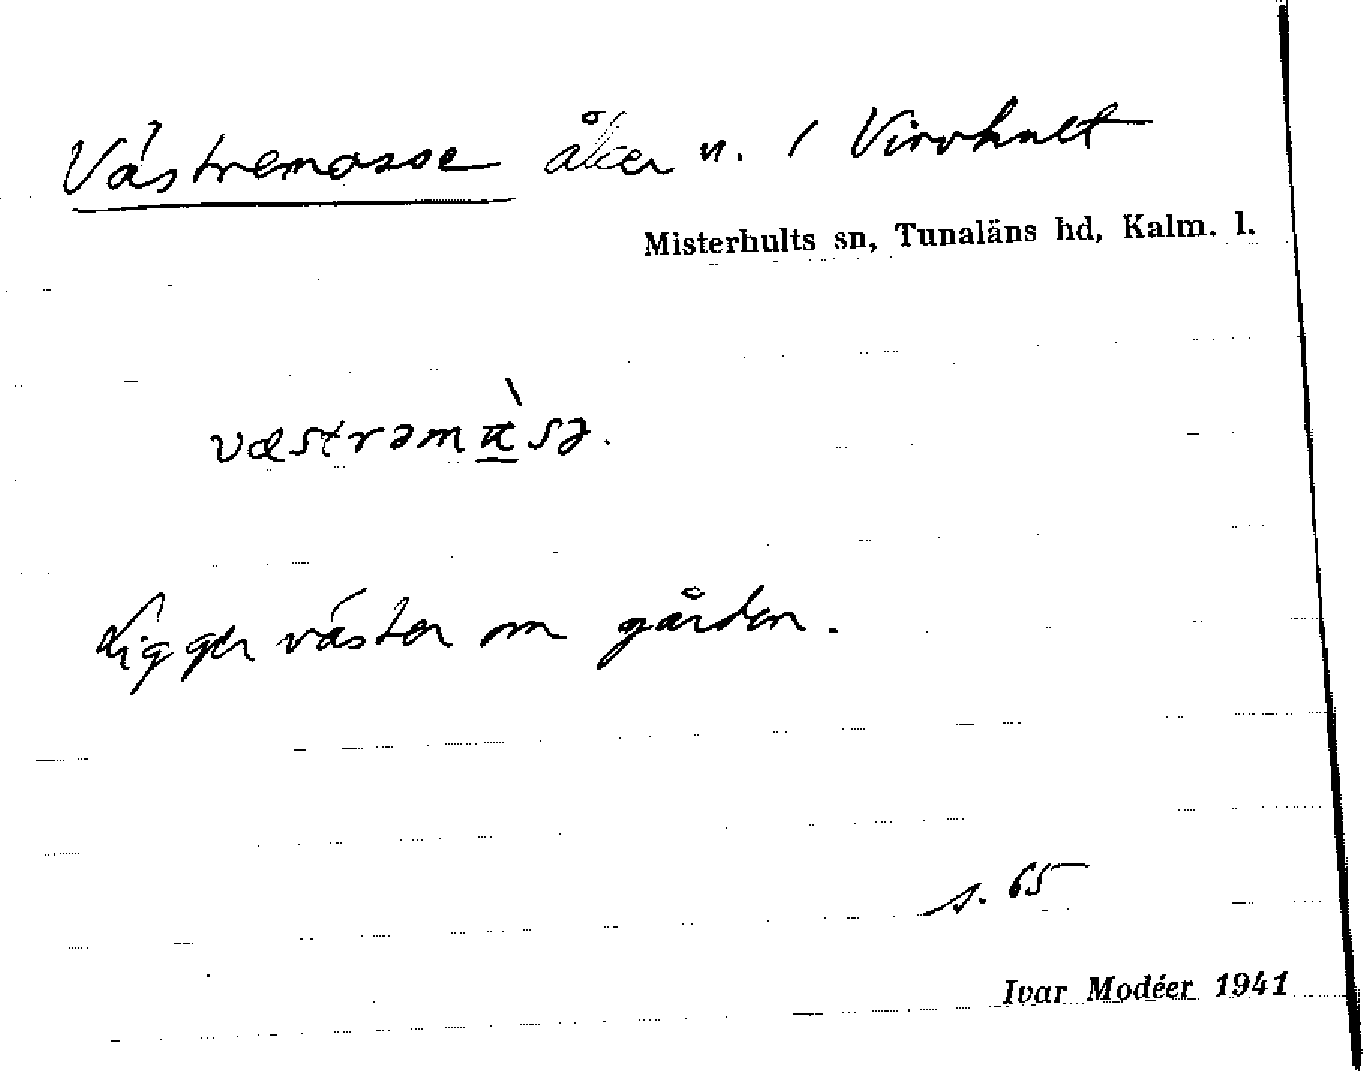 Västremosse åker n. / Virvhult
Misterhults sn, Tunaläns hd, Kalm. l.
væstrəmὰ̲sə.
Ligger väster om gården.
s. 65
Ivar Modéer 1941